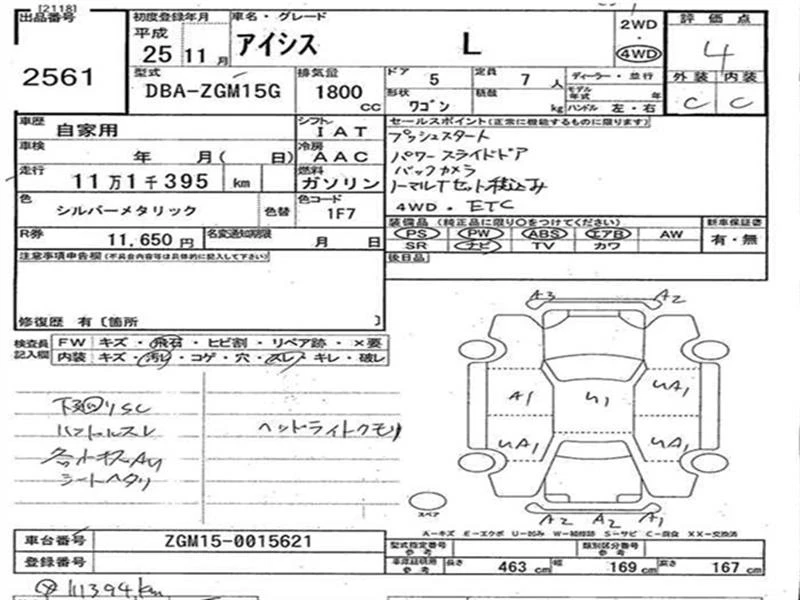 [2118]
出品番号
2561
初度登録年月
平成
25 11 月
車名・グレード
アイシス L
2WD
・
4WD
評価点
4
外装 内装
C C
型式
DBA-ZGM15G
排気量
1800
CC
ドア 5
定員 7 人
形状 ワゴン
積載 kg
ディーラー・並行
モデル年式 年
ハンドル 左・右
車歴 自家用
シフト IAT
車検 年 月( 日)
冷房 AAC
走行 11万1千395 km
燃料 ガソリン
色 シルバーメタリック 色替
色コード 1F7
R券 11,650 円
名変通知期限 月 日
セールスポイント(正常に機能するものに限ります)
プッシュスタート
パワースライドドア
バックカメラ
ノーマルTセット積込み
4WD・ETC
装備品 (純正品に限り○をつけてください)
PS PW ABS エアB AW
SR ナビ TV カワ
新車保証書
有・無
後日品
注意事項申告欄(不具合内容等は具体的に記入して下さい)
修復歴 有 [箇所 ]
検査員記入欄
FW キズ・飛石・ヒビ割・リペア跡・×要
内装 キズ・汚れ・コゲ・穴・スレ・キレ・破レ
下回りSC
ハンドルスレ
ヘッドライトクモリ
シートヘタリ
A3 A2
A1 U1 UA1
UA1 UA1
A2 A2 A1
スペア
A−キズ E−エクボ U−凹み W−補修跡 S−サビ C−腐食 XX−交換済
車台番号 ZGM15-0015621
登録番号
型式指定番号 参考
類別区分番号 参考
車庫証明用 参考
長さ 463 cm 幅 169 cm 高さ 167 cm
111394km